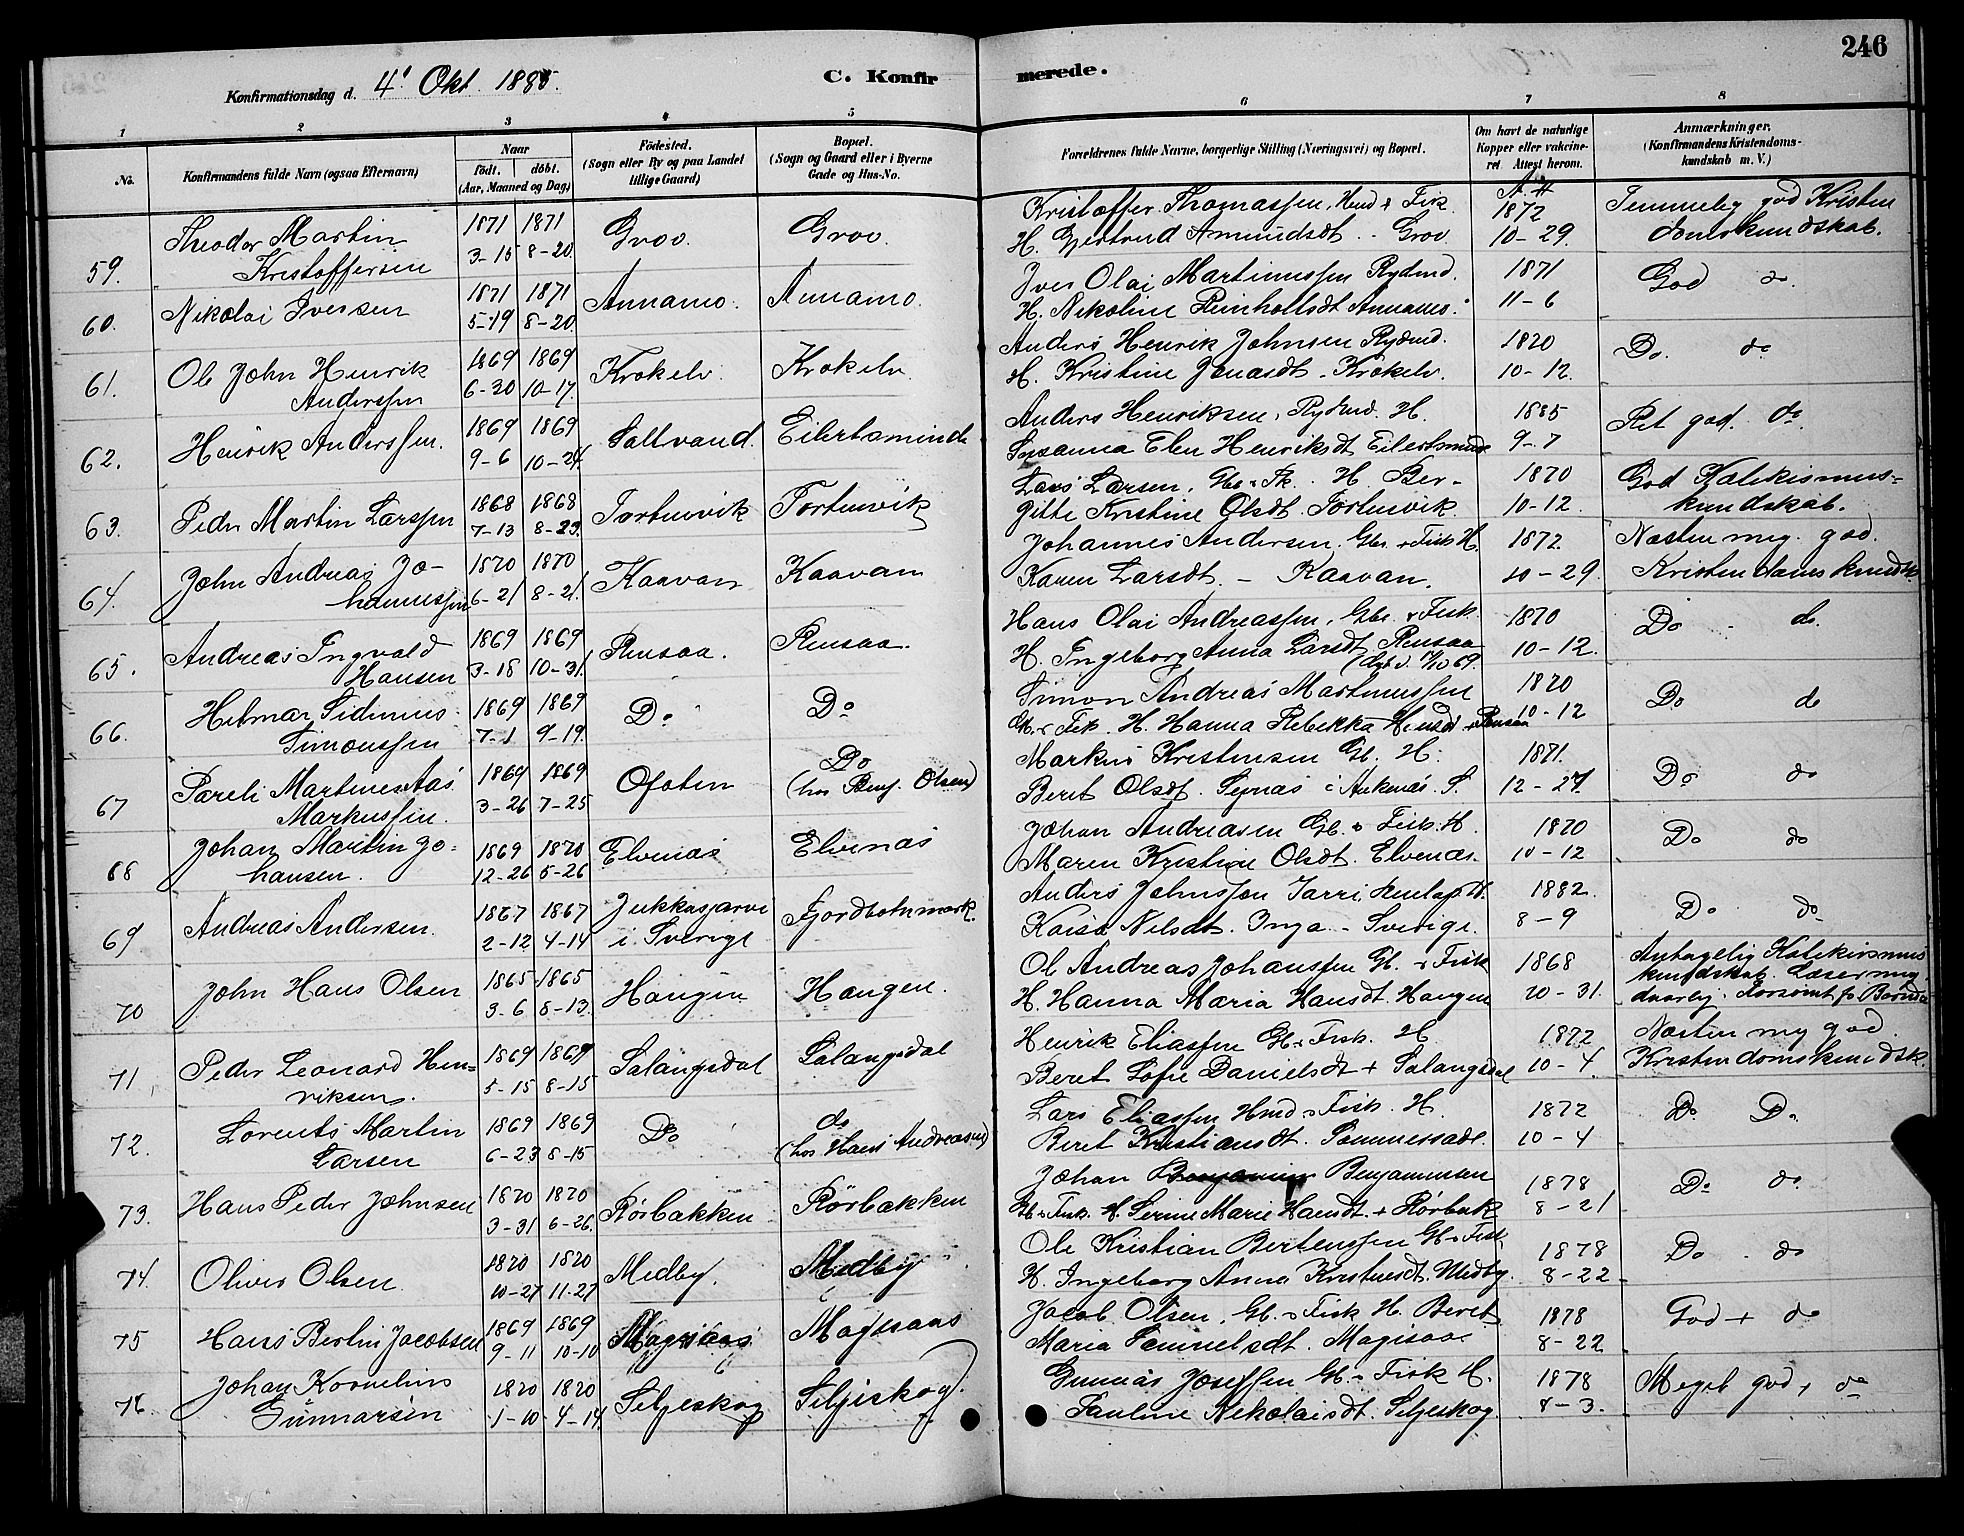 246
Konfirmationsdag d. 4' Okt. 1885.
C. Konfirmerede.
1 2 3 4 5 6 7 8
No.
Konfirmandens fulde Navn (ogsaa Efternavn)
Naar
født. døbt.
(Aar, Maaned og Dag)
Fødested.
(Sogn eller By og paa Landet
tillige Gaard)
Bopæl.
(Sogn og Gaard eller i Byerne
Gade og Hus-No.
Forældrenes fulde Navne, borgerlige Stilling (Næringsvei) og Bopæl.
Om havt de naturlige
Kopper eller vakcine-
ret. Attest herom.
Anmærkninger.
(Konfirmandens Kristendoms-
kundskab m. V.)
59. Theodor Martin
Kristoffersen
1871 1871
3-15 8-20
Grov. Grov.
Kristoffer Thomassen, Hmd & Fisk.
H. Gjertrud Amundsdt. - Grov
1872
10-29.
Temmelig god Kristen
domskundskab.
60. Nikolai Iversen
1871 1871
5-19 8-20
Annamo. Annamo.
Iver Olai Martinussen Rydmd.
H. Nikoline Reinholtsdt Annamo.
1871
11-6
God do
61. Ole John Henrik
Anderssen
1869 1869
6-30 10-17.
Krokelv. Krokelv.
Anders Henrik Johnsen Rydmd.
H. Kristine Jonasdt - Krokelv.
1870
10-12.
Do. do
62. Henrik Anderssen.
1869 1869
9-6 10-24.
Saltvand. Eilertsminde
Anders Henriksen, Rydmd. H.
Susanna Elen Henriksdt Eilertsminde
1885
9-7
Ret god. do.
63. Peder Martin Larssen
1868 1868
7-13 8-23.
Tortenvik Tortenvik
Lars Larsen, Gbr & Fk. H. Ber-
gitte Kristine Olsdt. Tortenvik.
1870
10-12.
God Katekismus-
kundskab.
64. John Andreas Jo-
hannessen
1870 1870
6-21 8-21.
Kaavan Kaavan
Johannes Andersen. Gbr. & Fisk H.
Karen Larsdt. - Kaavan.
1872.
10-29.
Næsten meg. god.
Kristendomskundsk
65. Andreas Ingvald
Hansen
1869 1869
3-18 10-31.
Rensaa. Rensaa.
Hans Olai Andreassen, Gbr. & Fisk.
H. Ingeborg Anna Larsdt Rensaa
1870
10-12.
Do - do.
66. Hilmar Sidenius
Simonssen
1869 1869
7-1 9-19.
Do Do
Simon Andreas Martinussen
Gb. & Fisk. H. Hanna Rebekka Rensaa
1870
10-12
Do do
67 Pareli Martines
Markussen.
1869 1869
3-26 7-25
Ofoten Do
(hos Benj. Olsen)
Markus Kristensen Gb. H.
Beret Olsdt. Segnæs i Ankenæs S.
1871.
12-27.
Do do
68 Johan Martin Jo-
hansen.
1869 1870
12-26 5-26
Elvenæs Elvenæs
Johan Andreasen Gb. & Fisk. H.
Maren Kristine Olsdt. Elvenæs.
1870
10-12
Do do
69 Andreas Andersen.
1867 1867
2-12 4-14
Jukkasjarvi
i Sverige
Fjordbotnmark.
Anders Johnssen Sarri H.
Kaisa Nilsdt. Inga - Sverige.
1882.
8-9
Do do
70 John Hans Olsen
1865 1865
3-6 8-13.
Haugen Haugen.
Ole Andreas Johanssen Gb. & Fisk
H. Hanna Maria Hansdt. Haugen
1868
10-31.
Antagelig Katekismus
kundskab. Læser meg
daarlig. Forsømt
71. Peder Leonard Hen-
riksen.
1869 1869
5-15 8-15
Salangsdal Salangsdal
Henrik Eliassen Gb. & Fisk. H.
Beret Sofie Danielsdt + Salangsdal
1872
10-4.
Næsten meg god.
Kristendomskundsk.
72. Lorents Martin
Larsen
1869 1869
6-23 8-15
Do do
(hos Hans Andreasen)
Lars Eliassen Hmd & Fisk. H.
Beret Kristiansdt. Sommersæde.
1872
10-4
Do Do
73. Hans Peder Johnsen
1870 1870
3-31 6-26.
Rørbakken Rørbakken
Johan Benjaminsen
Gb. & Fisk. H. Serine Marie Hansdt. + Rørbak
1878
8-21
Do do
74. Oliver Olsen
1870 1870
10-27 11-27
Medby. Medby
Ole Kristian Bertenssen Gb. & Fisk
H. Ingeborg Anna Kristensdt. Medby.
1878
8-22
Do do
75 Hans Bertin Jacobsen
1869 1869
9-11 10-10
Magisaas Magisaas
Jacob Olsen, Gb. & Fisk H. Beret
Maria Samuelsdt. Magisaas
1878
8-22
God + do
76. Johan Kornelius
Gunnarsen
1870 1870
1-10 4-14.
Seljeskog Seljeskog.
Gunnar Josefsen Gb. & Fisk H.
Pauline Nikolaisdt. Seljeskog
1878
8-3.
Meget god + do